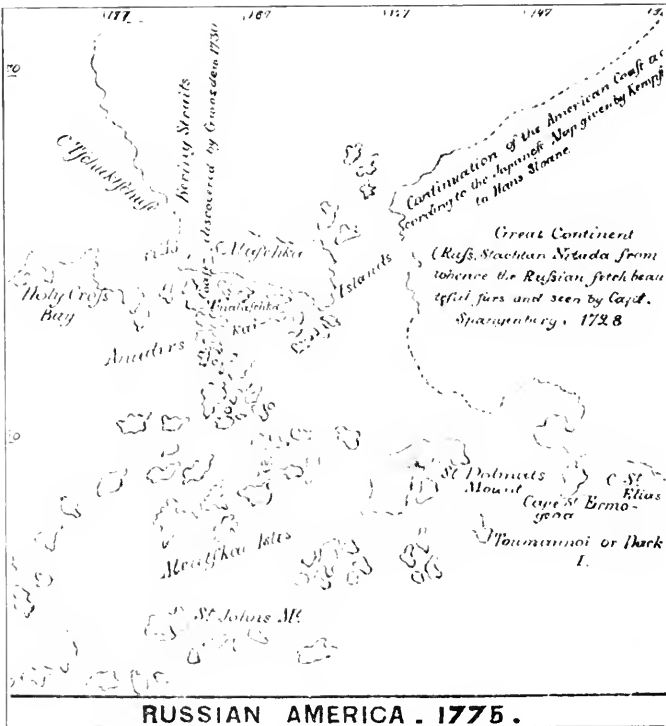 187
167
147
70
C Tschuktschuse
Bering Straits
Coast discovered by Gwosdew 1730
Continuation of the American Coast ac
cording to the Japanese Map given by Kempf
to Hans Sloane.
Great Continent
(Russ. Stachtan Nitada from
whence the Russian fetch beau
tiful furs and seen by Capt.
Spangenburg. 1728
C. Alaschka
Islands
Holy Cross
Bay
Unalaschka
Kai
Anadirs
St Dolmats
Mount
C St
Elias
Cape St Ermo-
gena
Aleutskai Isles
Toumannoi or Dark
I.
St Johns Mt.
RUSSIAN AMERICA. 1775.